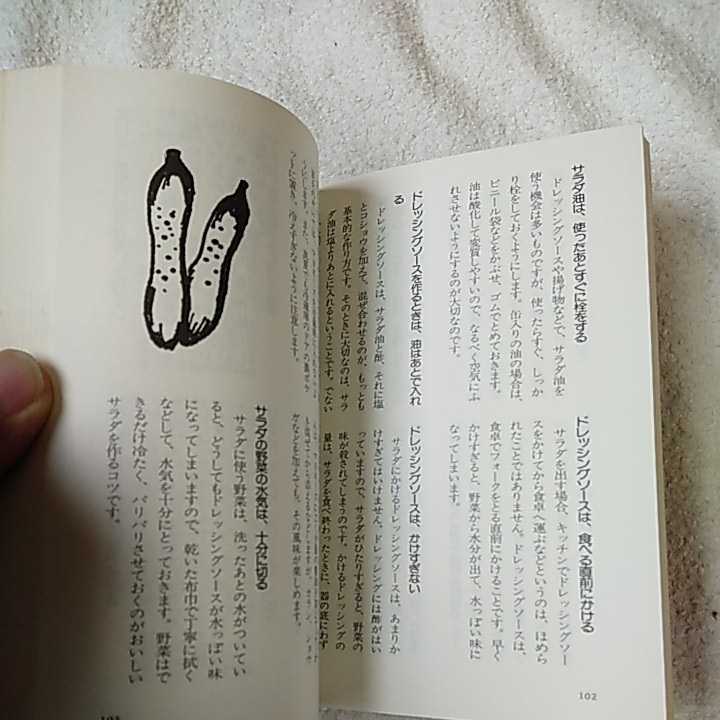 サラダ油は、使ったあとすぐに栓をする
ドレッシングソースや揚げ物などで、サラダ油を
使う機会は多いものですが、使ったらすぐ、しっか
り栓をしておくようにします。缶入りの油の場合は、
ビニール袋などをかぶせ、ゴムでとめておきます。
油は酸化して変質しやすいので、なるべく空気にふ
れさせないようにするのが大切なのです。
ドレッシングソースを作るときは、油はあとで入れ
る
ドレッシングソースは、サラダ油と酢、それに塩
とコショウを加えて、混ぜ合わせるのが、もっとも
基本的な作り方です。そのときに大切なのは、サラ
ダ油は塩よりあとに入れるということです。でない
ドレッシングソースは、食べる直前にかける
サラダを出す場合、キッチンでドレッシングソー
スをかけてから食卓へ運ぶなどというのは、ほめら
れたことではありません。ドレッシングソースは、
食卓でフォークをとる直前にかけることです。早く
かけすぎると、野菜から水分が出て、水っぽい味に
なってしまいます。
ドレッシングソースは、かけすぎない
サラダにかけるドレッシングソースは、あまりか
けすぎてはいけません。ドレッシングには酢がはい
っていますので、サラダがひたりすぎると、野菜の
味が殺されてしまうのです。かけるドレッシングの
量は、サラダを食べ終わったときに、器の底にわず
102
うにします。また、
うに置き、冷えすぎないように注意します。
などを加えても、その風味が楽しめます。
サラダの野菜の水気は、十分に切る
サラダに使う野菜は、洗ったあとの水がついてい
ると、どうしてもドレッシングソースが水っぽい味
になってしまいますので、乾いた布巾で丁寧に拭く
などして、水気を十分にとっておきます。野菜はで
きるだけ冷たく、パリパリさせておくのがおいしい
サラダを作るコツです。